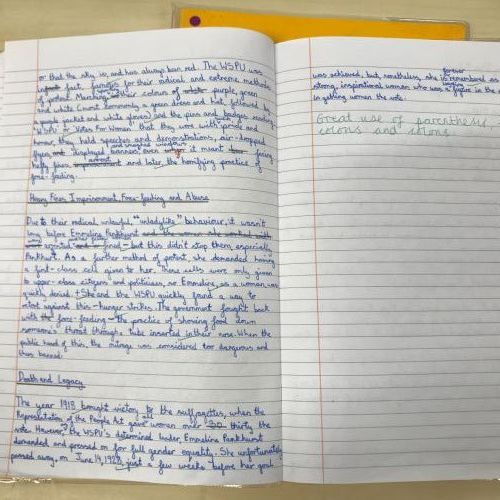 or that the sky is, and has always been red. The WSPU was
in fact famous for their radical and extreme methods
of protest. Marching in their colours of purple, green
and white (most commonly a green dress and hat, followed by
a purple jacket and white gloves) and the pins and badges reading
'WSPU' or 'Votes For Women' that they wore with pride and
honour, they held speeches and demonstrations, air-dropped
flyers and smashed windows
displayed banners, even when it meant facing
hefty fines, arrest and later, the horrifying practice of
force-feeding.
Heavy Fines, Imprisonment, Force-feeding and Abuse
Due to their radical, unlawful, "unladylike" behaviour, it wasn't
long before Emmeline Pankhurst
was arrested and fined - but this didn't stop them, especially
Pankhurst. As a further method of protest, she demanded having
a first-class cell given to her. These cells were only given
to upper-class citizens and politicians, so Emmeline, as a woman, was
quickly denied. She and the WSPU quickly found a way to
start against this - hunger strikes. The government fought back
with force-feeding - The practice of shoving food down
someone's throat through a tube inserted in their nose. When the
public heard of this, the outrage was considered too dangerous and
thus banned.
Death and Legacy
The year 1918 brought victory to the suffragettes, when the
Representation of the People Act gave all women over thirty the
vote. However, the WSPU's determined leader, Emmeline Pankhurst
demanded and pressed on for full gender equality. She unfortunately
passed away on June 14, 1928, just a few weeks before her goal
was achieved, but nonetheless, she is forever remembered as
strong, inspirational woman who was a leading figure in the
in getting women the vote.
Great use of parenthesis,
colons and